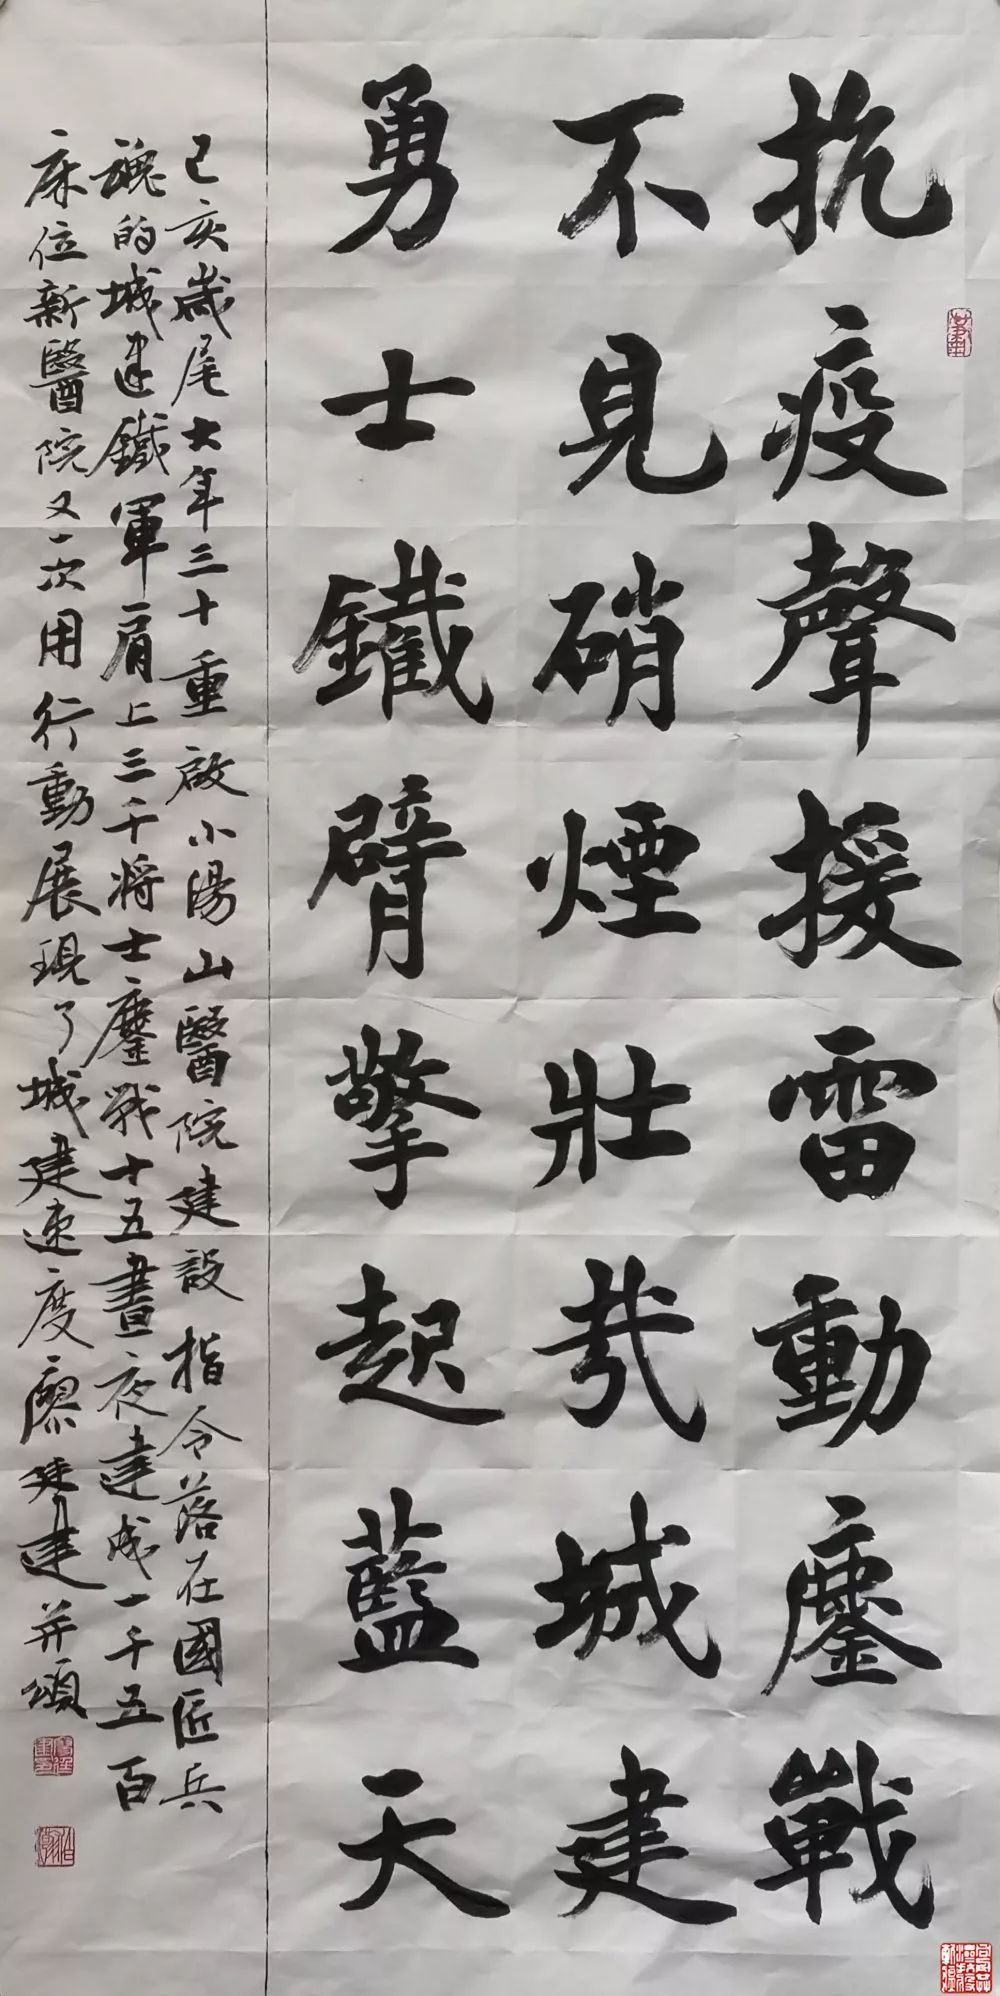 抗疫聲援雷動鏖戰
不見硝煙壯哉城建
勇士鐵臂擎起藍天
己亥歲尾大年三十重啟小湯山醫院建設指令落在國匠兵
魂的城建鐵軍肩上三千將士鏖戰十五晝夜建成一千五百
床位新醫院又一次用行動展現了城建速度廖登建并頌